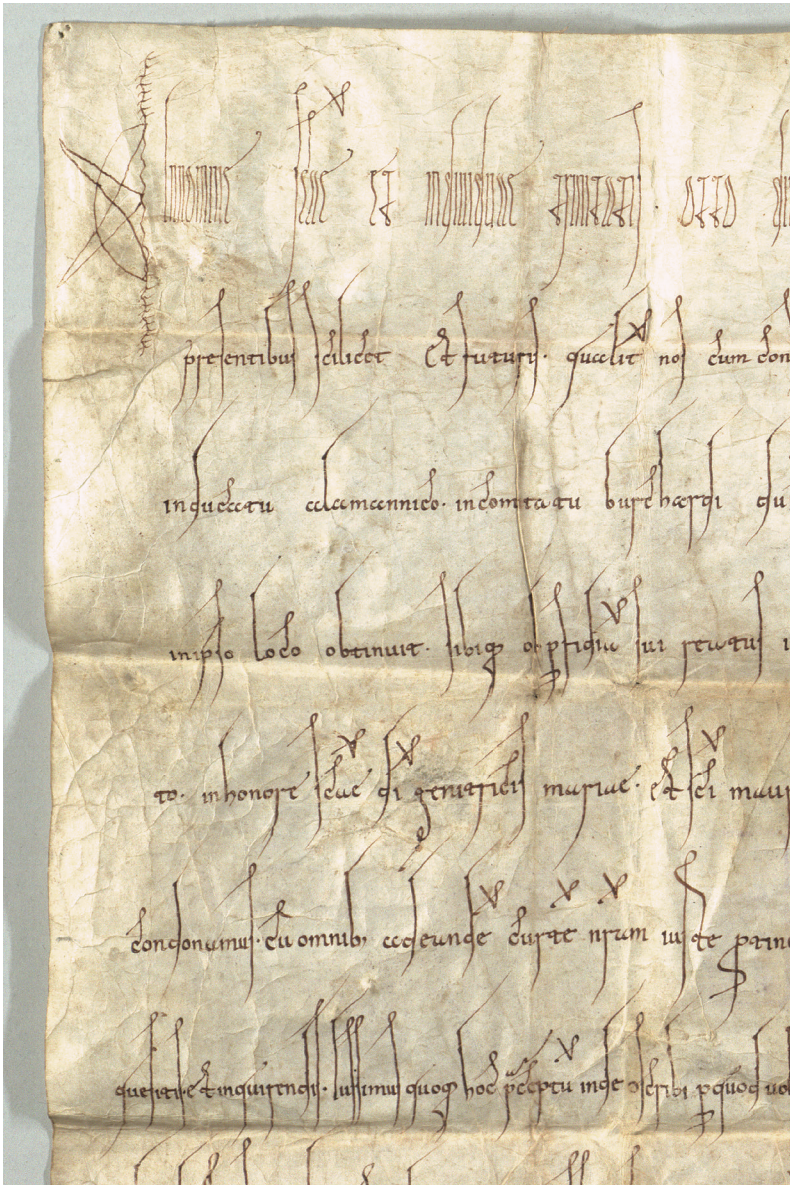 In nomine scae et indiuiduae trinitatis. otto
presentibus scilicet et futuris. qualit nos dum
in ducatu alamannico. in comitatu burchardi
in ipso loco obtinuit. sibiq; obsequiu sui senatus
to. in honore scae di genitricis mariae. et sci
condonamus. cu omnib; ad eande curte nram iuste
quesitis et inquirendis. Iussimus quoq; hoc pceptu inde cscribi p quod